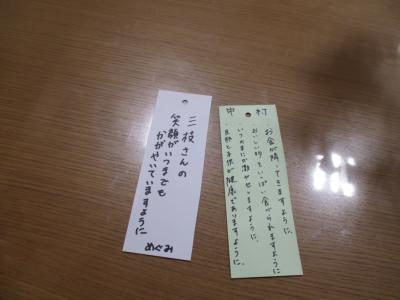 三枝さんの
笑顔がいつまでも
かがやいていますように
めぐみ
中村
・お金が降ってきますように。
・おいしい物をいっぱい食べられますように
・いつのまにか激やせしますように。
・旦那と子供が健康でありますように。